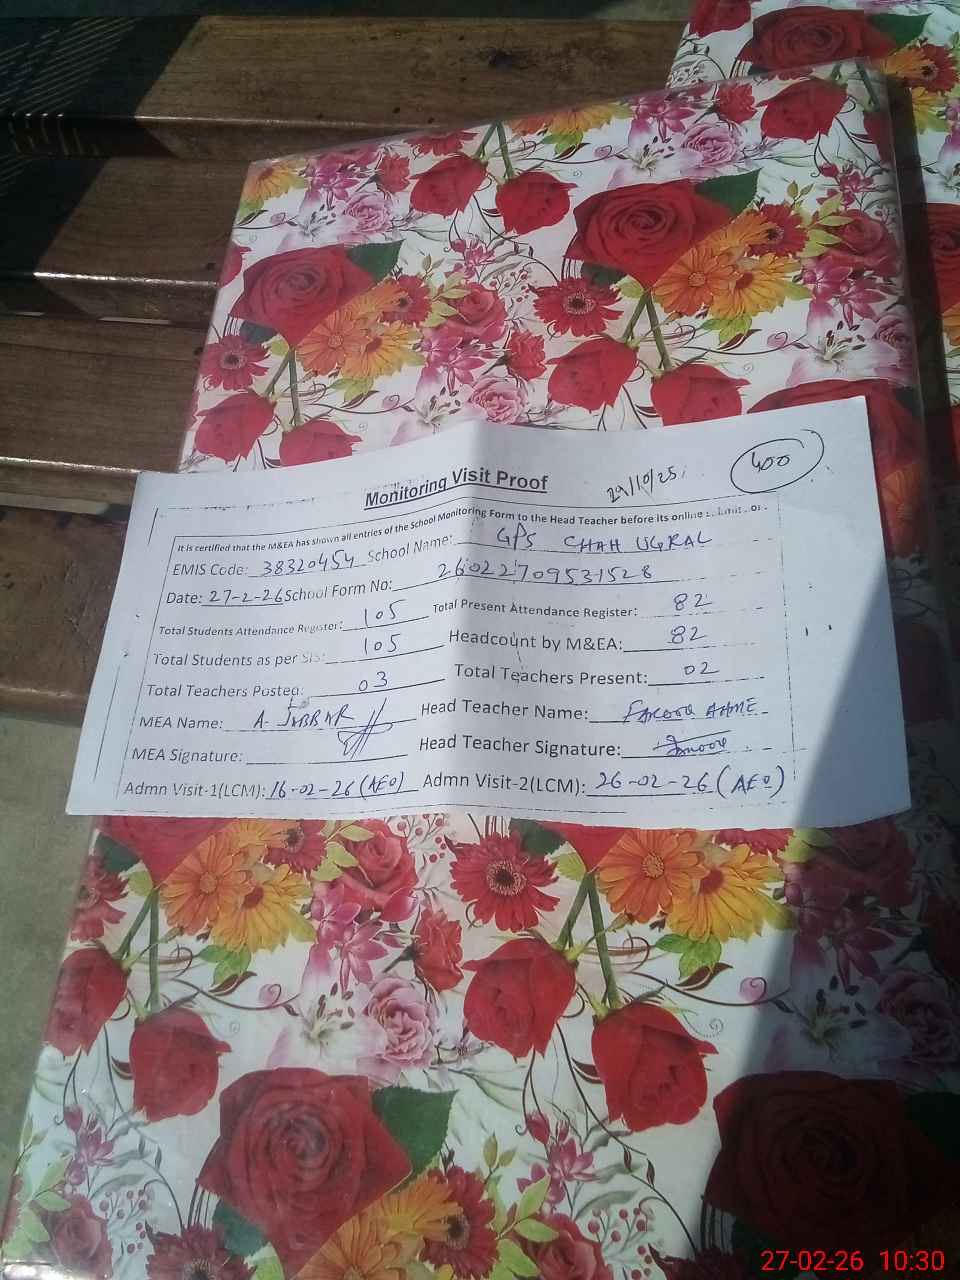 Monitoring Visit Proof
29/10/25
400
It is certified that the M&EA has shown all entries of the School Monitoring Form to the Head Teacher before its online
EMIS Code: 38320454 School Name: GPS CHAH UGRAL
Date: 27-2-26 School Form No: 26022709531528
Total Students Attendance Register: 105 Total Present Attendance Register: 82
Total Students as per SIS: 105 Headcount by M&EA: 82
Total Teachers Posted: 03 Total Teachers Present: 02
MEA Name: A. JABBAR Head Teacher Name:
MEA Signature: Head Teacher Signature:
Admn Visit-1(LCM): 16-02-26 (AEO) Admn Visit-2(LCM): 26-02-26 (AEO)
27-02-26 10:30